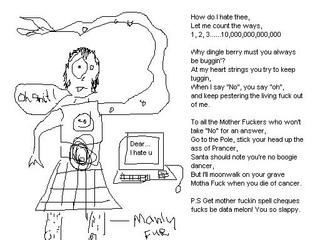 How do I hate thee,
Let me count the ways,
1, 2, 3.....10,000,000,000,000
Why dingle berry must you always
be buggin'?
At my heart strings you try to keep
tuggin,
When I say "No", you say "oh",
and keep pestering the living fuck out
of me.
To all the Mother Fuckers who won't
take "No" for an answer,
Go to the Pole, stick your head up the
ass of Prancer,
Santa should note you're no boogie
dancer,
But I'll moonwalk on your grave
Motha Fuck when you die of cancer.
P.S Get mother fuckin spell cheques
fucks be data melon! You so slappy.
Oh snit!
Dear...
I hate u
Manly
Fur